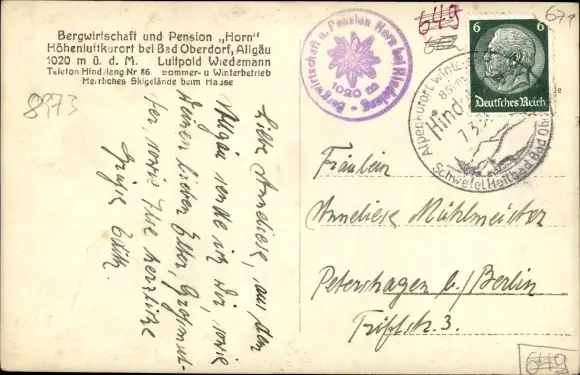 Bergwirtschaft und Pension „Horn"
Höhenluftkurort bei Bad Oberdorf, Allgäu
1020 m ü. d. M. Luitpold Wiedemann
Telefon Hindelang Nr 86. Sommer- u Winterbetrieb
Herrliches Skigelände beim Hause
8973
Liebe Anneliese, aus dem
Allgäu sende ich Dir, sowie
Deinen lieben Eltern, Grossmut-
ter, sowie Ilse herzliche
Grüsse Edith.
Bergwirtschaft u. Pension Horn bei Hindelang
1020 m
649
671
6 6
Deutsches Reich
Alpenkurort Winter
Hind
7.3.
Schwefel Heilbad Bad Ob
Fräulein
Anneliese Mühlmeister
Petershagen b./Berlin
Triftstr. 3.
649